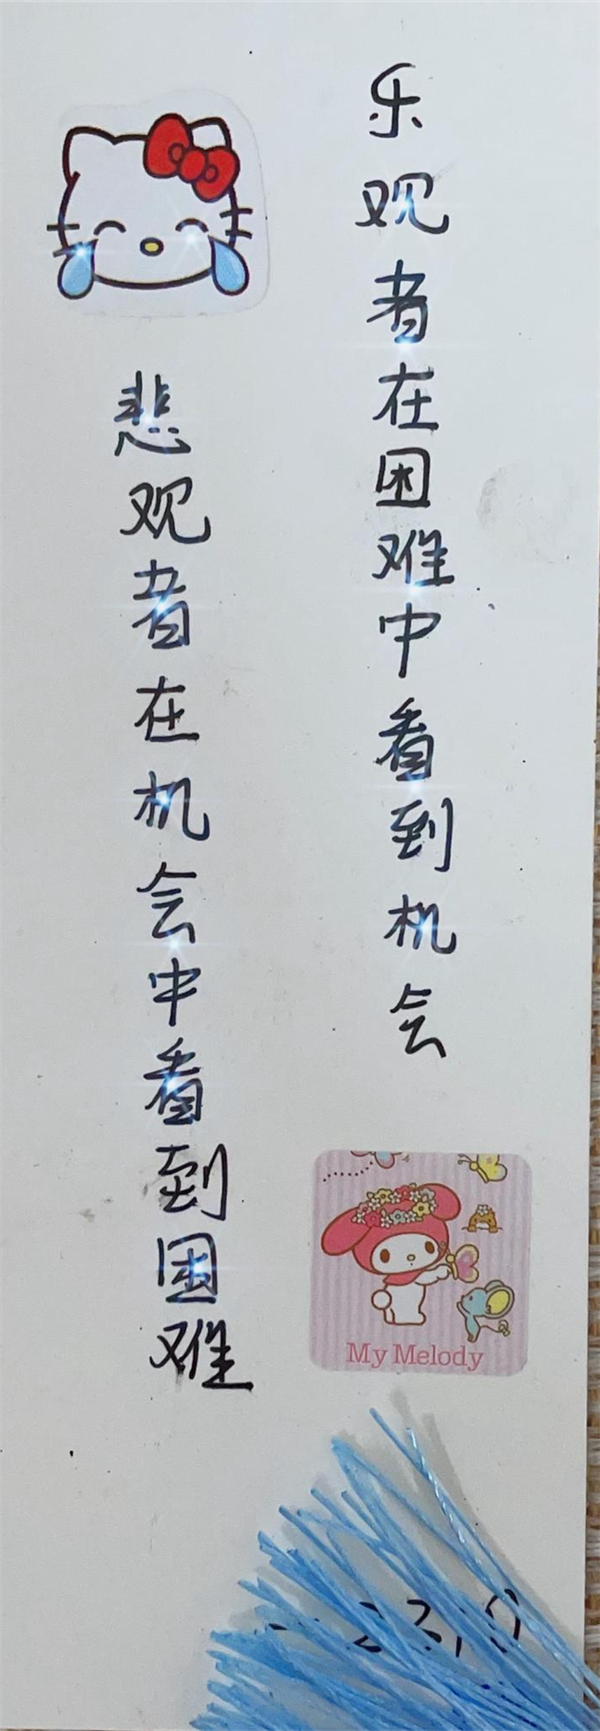 乐观者在困难中看到机会
悲观者在机会中看到困难
My Melody